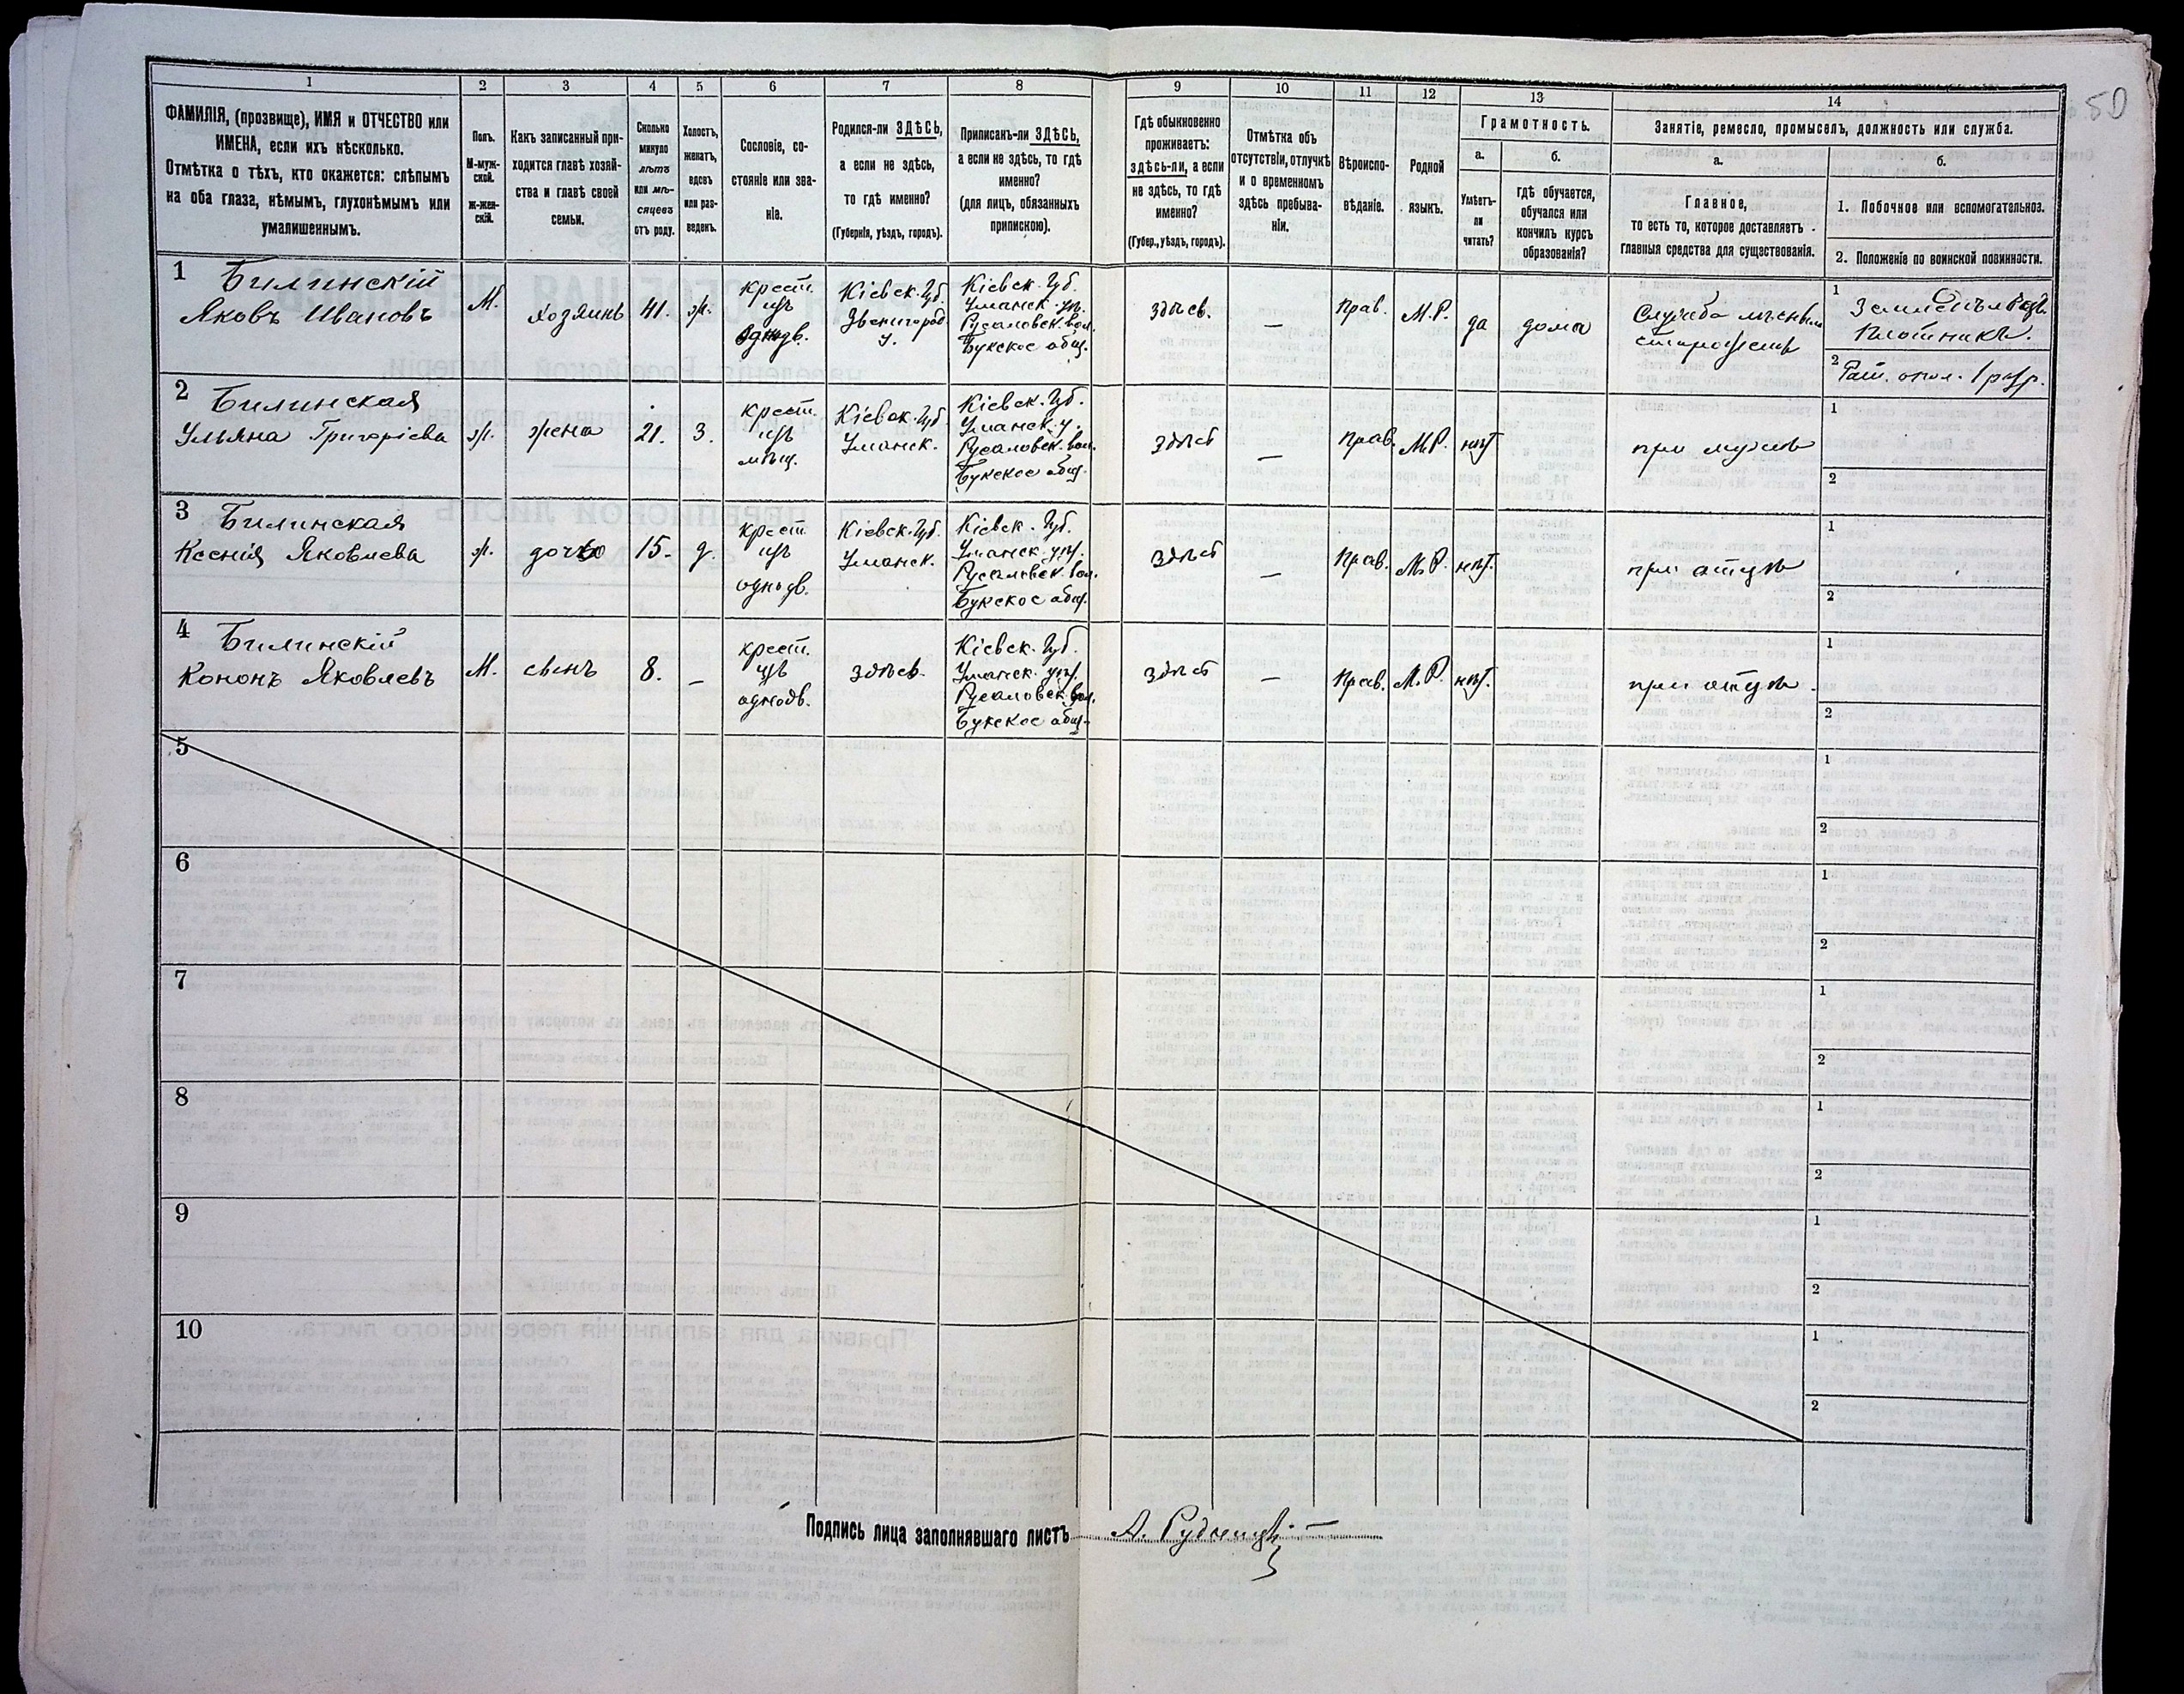 50
1
2
3
4
5
6
7
8
9
10
11
12
13
14
ФАМИЛІЯ, (прозвище), ИМЯ и ОТЧЕСТВО или
ИМЕНА, если ихъ нѣсколько.
Отмѣтка о тѣхъ, кто окажется: слѣпымъ
на оба глаза, нѣмымъ, глухонѣмымъ или
умалишеннымъ.
Полъ.
М-муж-
ской.
ж-жен-
скій.
Какъ записанный при-
ходится главѣ хозяй-
ства и главѣ своей
семьи.
Сколько
минуло
лѣтъ
или мѣ-
сяцевъ
отъ роду.
Холостъ,
женатъ,
вдовъ
или раз-
веденъ.
Сословіе, со-
стояніе или зва-
ніе.
Родился-ли ЗДѢСЬ,
а если не здѣсь,
то гдѣ именно?
(Губернія, уѣздъ, городъ).
Приписанъ-ли ЗДѢСЬ,
а если не здѣсь, то гдѣ
именно?
(для лицъ, обязанныхъ
припискою).
Гдѣ обыкновенно
проживаетъ:
здѣсь-ли, а если
не здѣсь, то гдѣ
именно?
(Губер., уѣздъ, городъ).
Отмѣтка объ
отсутствіи, отлучкѣ
и о временномъ
здѣсь пребыва-
ніи.
Вѣроиспо-
вѣданіе.
Родной
языкъ.
Грамотность.
а.
Умѣетъ-
ли
читать?
б.
гдѣ обучается,
обучался или
кончилъ курсъ
образованія?
Занятіе, ремесло, промыселъ, должность или служба.
а.
Главное,
то есть то, которое доставляетъ
главныя средства для существованія.
б.
1. Побочное или вспомогательное.
2. Положеніе по воинской повинности.
1
Билинскій
Яковъ Ивановъ
М.
хозяинъ
41.
ж.
крест.
изъ
однодв.
Кіевск. Губ.
Звенигород.
у.
Кіевск. Губ.
Уманск. уѣз.
Русаловск. вол.
Букское общ.
здѣсь.
—
Прав.
М.Р.
да
дома
Служба
1
Плотникъ.
2
Рат. опол. 1 разр.
2
Билинская
Ульяна Григорієва
ж.
жена
21.
З.
крест.
изъ
мѣщ.
Кіевск. Губ.
Уманск.
Кіевск. Губ.
Уманск. у.
Русаловск. вол.
Букское общ.
здѣсь
—
Прав.
М.Р.
нѣт
при мужѣ
1
2
3
Билинская
Ксенія Яковлева
ж.
дочь
15.
д.
крест.
изъ
однодв.
Кіевск. Губ.
Уманск.
Кіевск. Губ.
Уманск. уѣз.
Русаловск. вол.
Букское общ.
здѣсь
—
Прав.
М.Р.
нѣт.
при отцѣ
1
2
4
Билинскій
Кононъ Яковлевъ
М.
сынъ
8.
—
крест.
изъ
однодв.
здѣсь.
Кіевск. Губ.
Уманск. уѣз.
Русаловск. вол.
Букское общ.
здѣсь
—
Прав.
М.Р.
нѣт.
при отцѣ.
1
2
5
1
2
6
1
2
7
1
2
8
1
2
9
1
2
10
1
2
Подпись лица заполнявшаго листъ